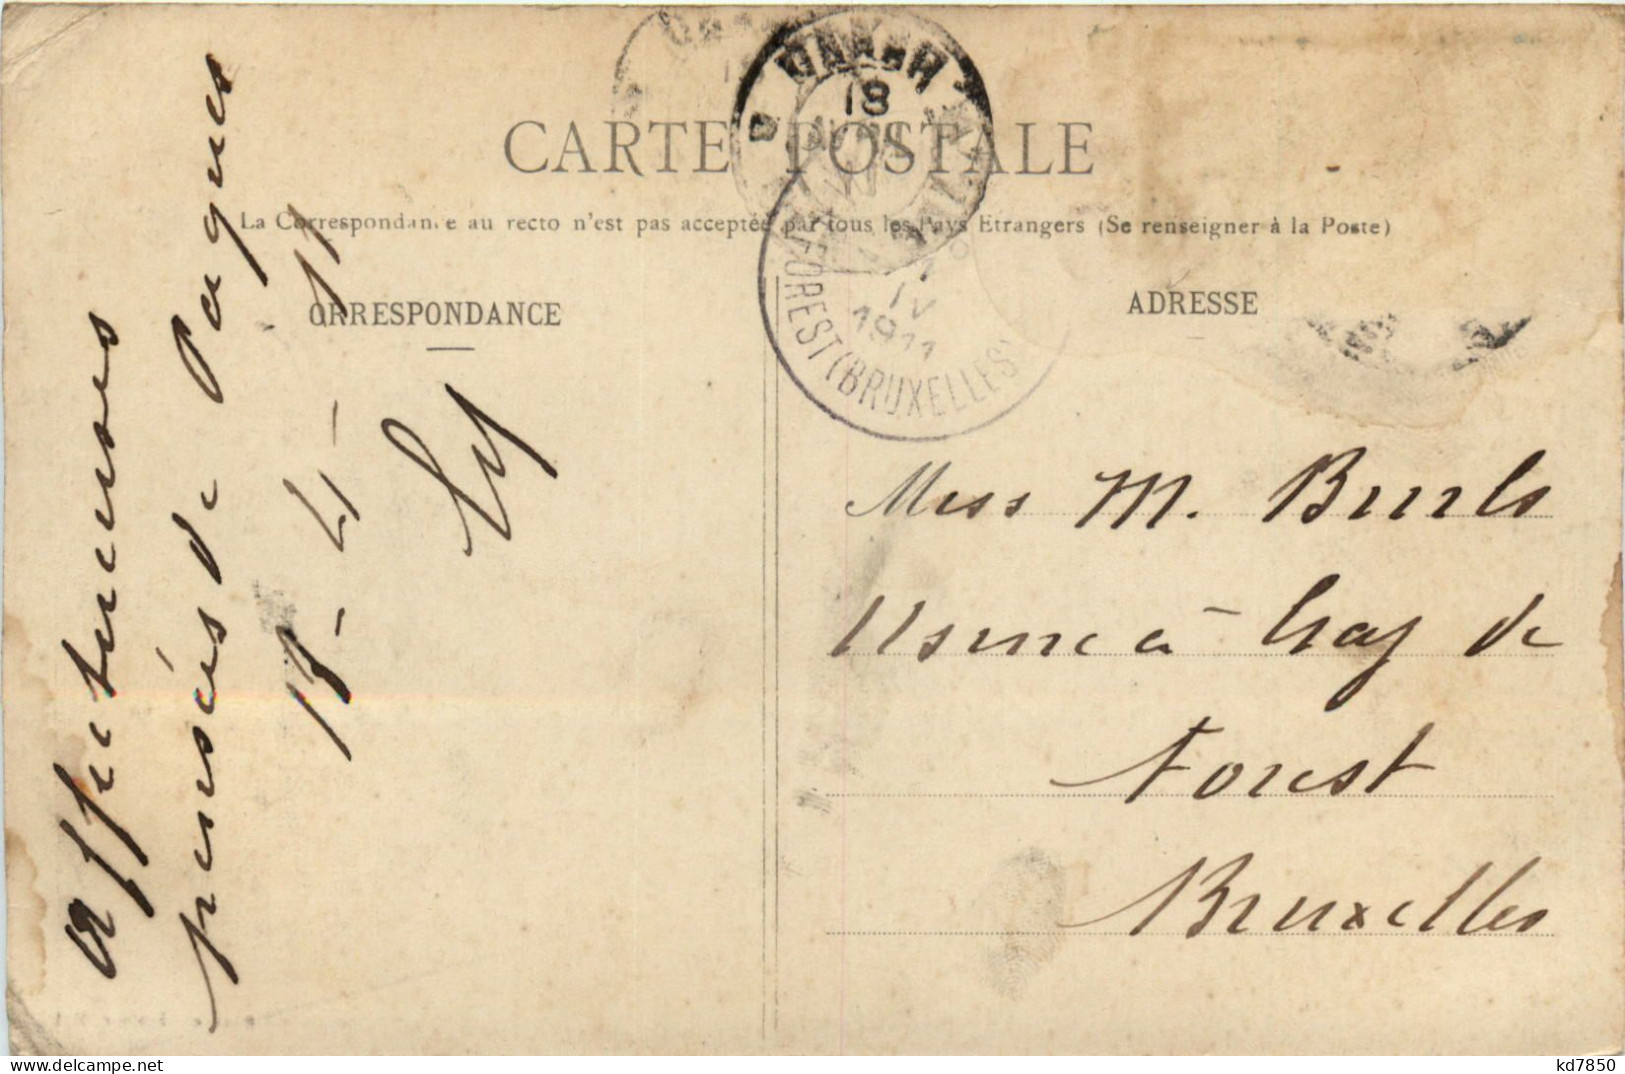 CARTE POSTALE
La Correspondance au recto n'est pas acceptée par tous les Pays Etrangers (Se renseigner à la Poste)
ORRESPONDANCE
ADRESSE
18
IV
1911
FOREST (BRUXELLES)
affectueuses
pensées de Pâques
18-4-11
Miss M. Burls
Usine à Gaz de
Forest
Bruxelles
kd7850